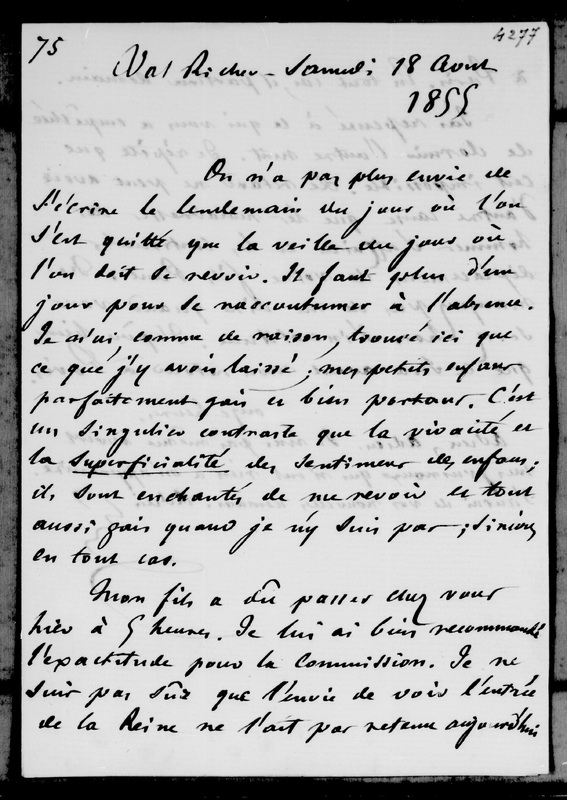 75
4277
Val Richer - Samedi 18 Août
1855
On n'a pas plus envie de
s'écrire le lendemain du jour où l'on
s'est quitté que la veille du jour où
l'on doit se revoir. Il faut plus d'un
jour pour se raccoutumer à l'absence.
Je n'ai, comme de raison, trouvé ici que
ce que j'y avois laissé ; mes petits enfans
parfaitement gais et bien portans. C'est
un singulier contraste que la vivacité et
la superficialité des sentimens des enfans ;
ils sont enchantés de me revoir et tout
aussi gais quand je n'y suis pas ; sincères
en tout cas.
Mon fils a dû passer chez vous
hier à 5 heures. Je lui ai bien recommandé
l'exactitude pour la commission. Je ne
suis pas sûr que l'envie de voir l'entrée
de la Reine ne l'ait pas retenu aujourd'hui